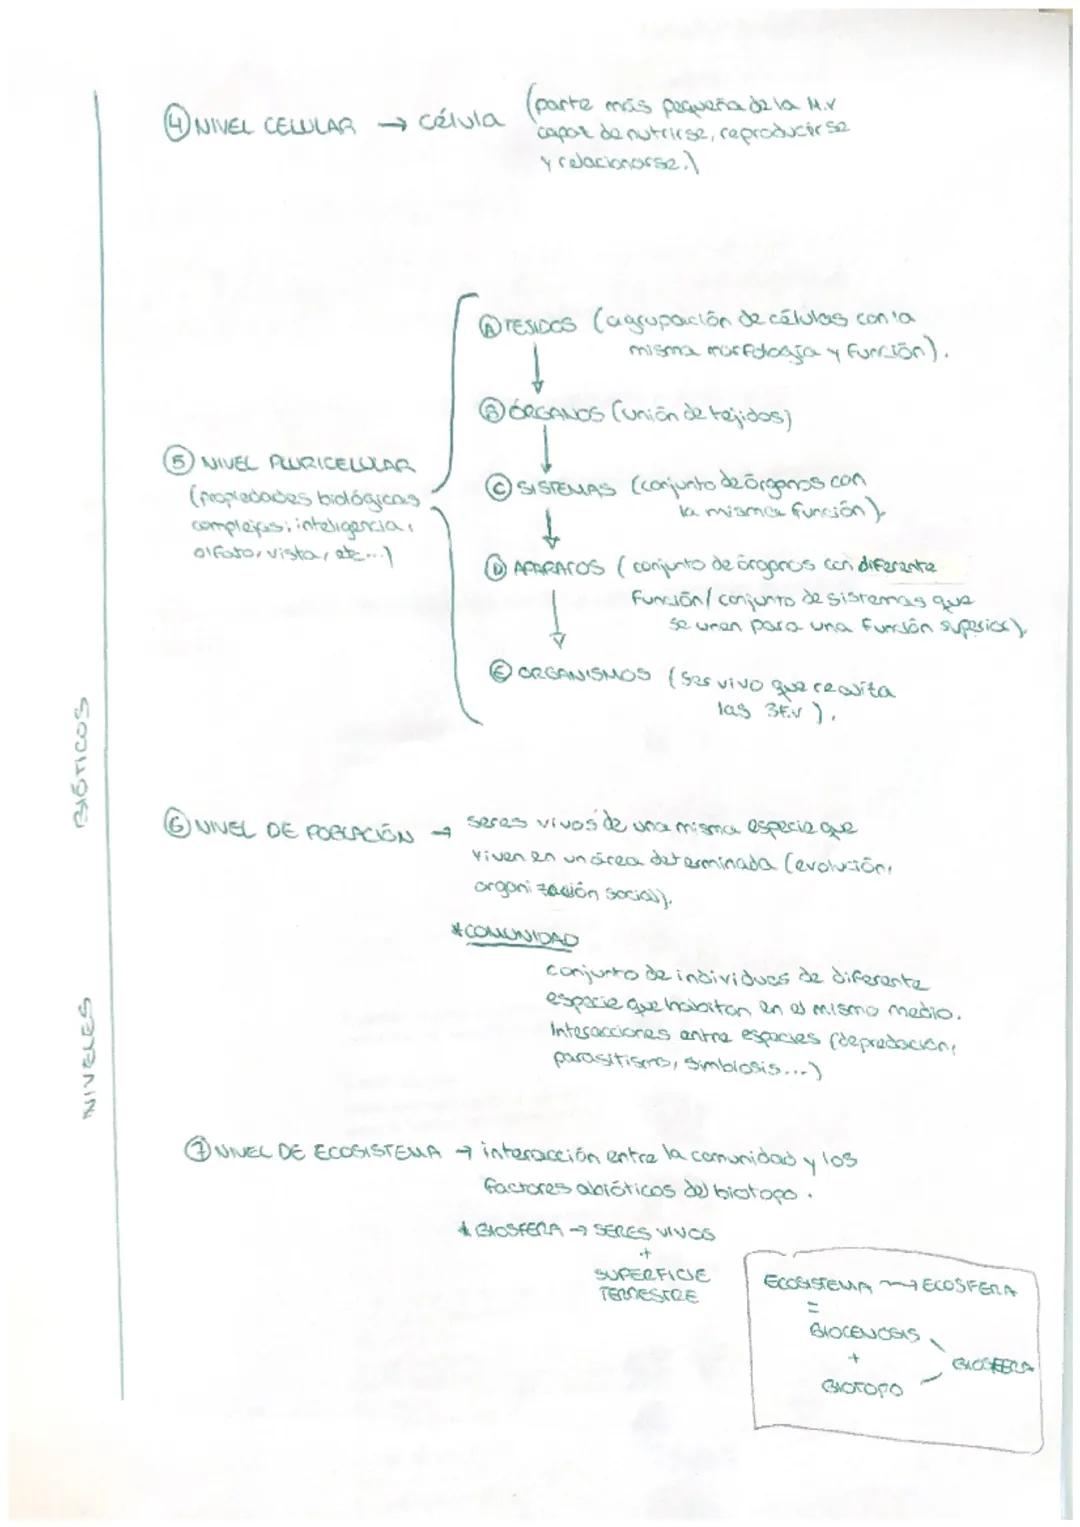 ④ NIVEL CELULAR → célula (parte más pequeña de la M.V
capaz de nutrirse, reproducirse
y relacionarse.)
Ⓐ TEJIDOS (agrupación de células con la
misma morfología y función).
↓
Ⓑ ÓRGANOS (unión de tejidos)
↓
⑤ NIVEL PLURICELULAR
(propiedades biológicas
complejas; inteligencia,
olfato, vista, etc...)
Ⓒ SISTEMAS (conjunto de órganos con
la misma función)
↓
Ⓓ APARATOS (conjunto de órganos con diferente
función/ conjunto de sistemas que
se unen para una función superior).
↓
Ⓔ ORGANISMOS (Ser vivo que realita
las 3F.V).
NIVELES BIÓTICOS
⑥ NIVEL DE POBLACIÓN → seres vivos de una misma especie que
viven en un área determinada (evolución,
organización social).
*COMUNIDAD
conjunto de individuos de diferente
especie que habitan en el mismo medio.
Interacciones entre especies (depredación,
parasitismo, simbiosis...)
⑦ NIVEL DE ECOSISTEMA → interacción entre la comunidad y los
factores abióticos del biotopo.
* BIOSFERA → SERES VIVOS
+
SUPERFICIE
TERRESTRE
ECOSISTEMA → ECOSFERA
=
BIOCENOSIS
+
BIOSFERA
BIOTOPO